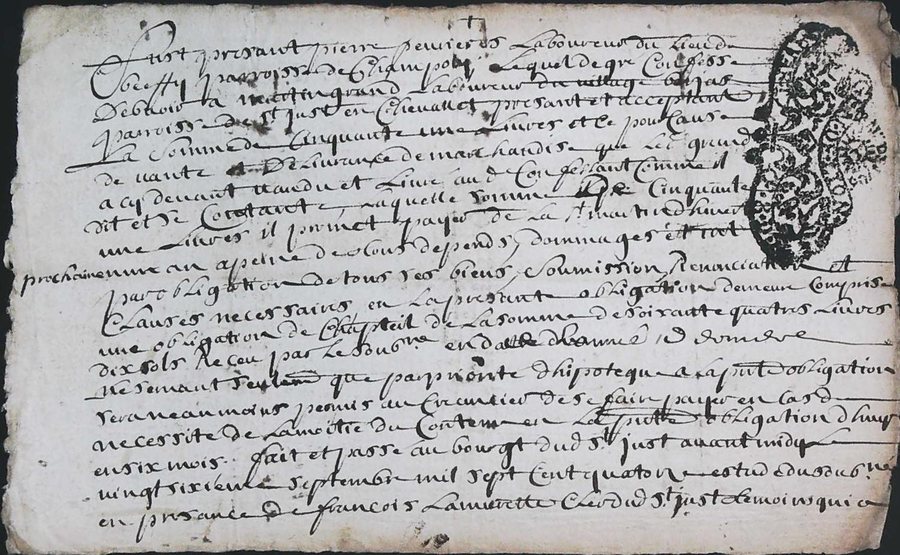 fust presant pierre laboureur du lieu de
parroisse de Champoly lequel de gre Confesse
Debvoir a martin grand Laboureur du village
parroisse de st just en Chevallet presant et acceptant
La somme de Cinquante une Livres et ce pour Cause
de vante Delivrance de marchandise que led grand
a cy devant vandu et Livré aud Confessant Comme il
dit et se Contante laquelle somme de Cinquante
une Livres il promet payer de la st martin d'hiver
prochaine en un an a peine de tous depends dommages et
par obligation de tous ses biens soumission Renonciation et
Clauses necessairs en la presante obligation demeure Comprise
une obligation de de la somme de soixante quatre Livres
dix sols Receu par le soubne en datte de
que par priorite d'hipoteque a la pnte obligation
sera neanmoins permis au Creantier de se fair payer en Cas de
necessite de la moitie du Contenu en la pnte obligation d'huy
en six mois fait et passe au bourgt dud st just avant midy
vingt sixieme septembre mil sept Cent quatorze estude du soubne
en presance de françois Lamurette Clerc dud st just temoins qui a